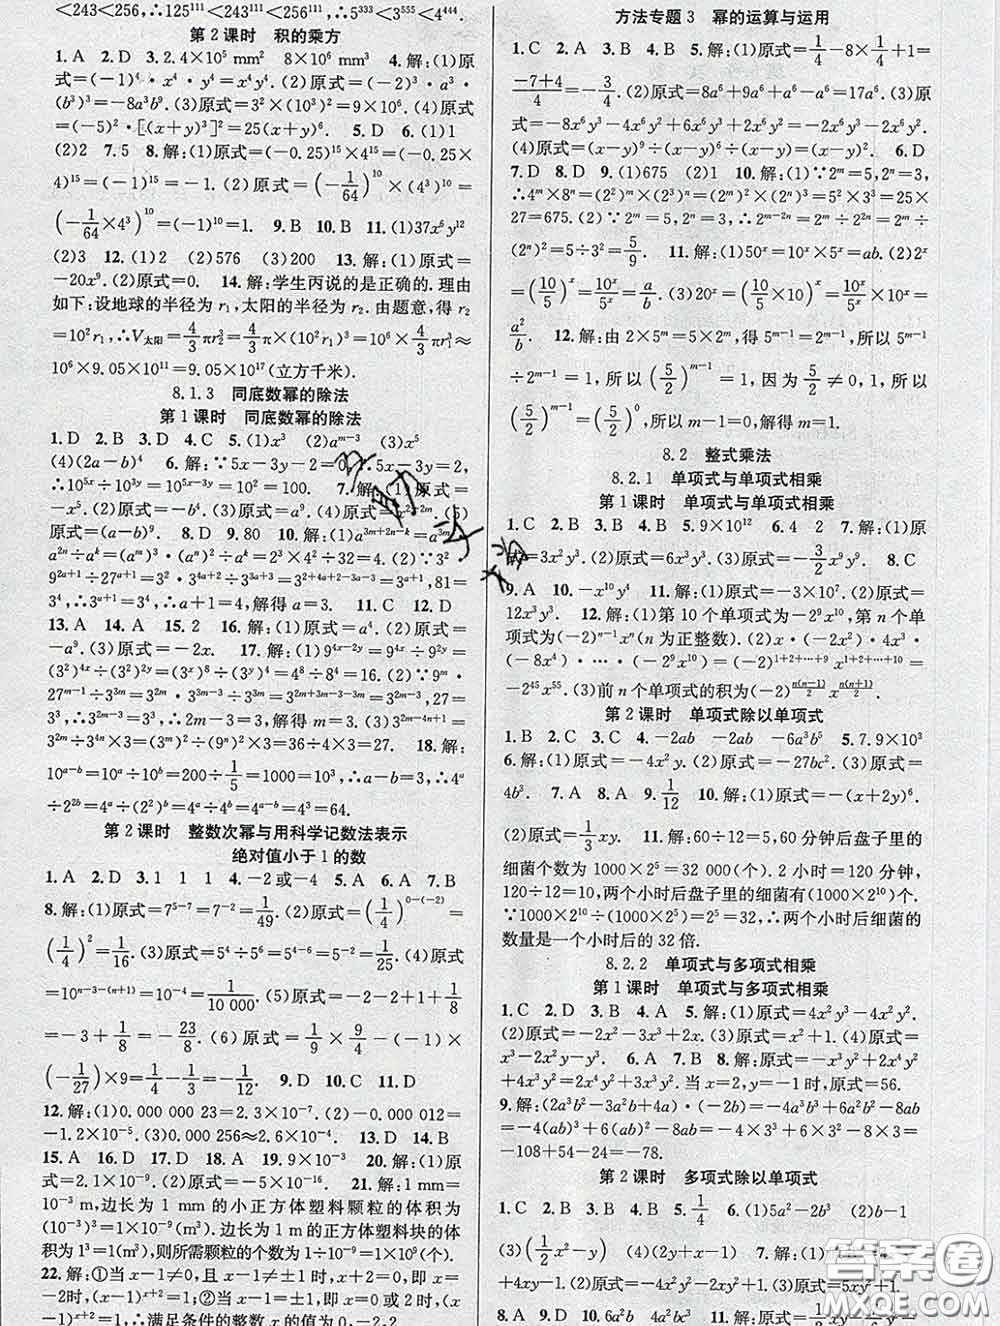 <243<256,∴125¹¹¹<243¹¹¹<256¹¹¹,∴5³³³<3⁵⁵⁵<4⁴⁴⁴.
第2课时 积的乘方
1.A 2.D 3.2.4×10⁵ mm² 8×10⁶ mm³ 4.解:(1)原
式=(-1)⁴·x⁴·y⁴=x⁴y⁴.(2)原式=(-2)³·a³·
(b³)³=-8a³b⁹.(3)原式=3²×(10³)²=9×10⁶.(4)原式
=(-5)²·[(x+y)³]²=25(x+y)⁶. 5.D 6.(1)1
(2)2 7.5 8.解:(1)原式=(-0.25)¹⁵×4¹⁵=(-0.25×
4)¹⁵=(-1)¹⁵=-1.(2)原式=(-1/64)¹⁰×(4³)¹⁰
=(-1/64×4³)¹⁰=(-1)¹⁰=1. 9.B 10.B 11.(1)37x⁶y¹²
(2)3 12.(1)2 (2)576 (3)200 13.解:(1)原式=
-20x⁹.(2)原式=0. 14.解:学生丙说的是正确的.理由
如下:设地球的半径为r₁,太阳的半径为r₂.由题意,得r₂
=10²r₁,∴V太阳=4/3πr₂³=4/3π×(10²r₁)³=10⁶×4/3πr₁³≈
10⁶×9.05×10¹¹=9.05×10¹⁷(立方千米).
8.1.3 同底数幂的除法
第1课时 同底数幂的除法
1.D 2.B 3.D 4.C 5.(1)x³ (2)aᵐ⁻³ (3)x⁵
(4)(2a-b)⁴ 6.解:∵5x-3y-2=0,∴5x-3y=2,
∴10⁵ˣ÷10³ʸ=10⁵ˣ⁻³ʸ=10²=100. 7.解:(1)原式=
-x⁵.(2)原式=-b⁴.(3)原式=a⁹.(4)原式=x².(5)
原式=(a-b)⁶. 8.D 9.80 10.解:(1)a³ᵐ⁺²ⁿ⁻ᵏ=a³ᵐ·
a²ⁿ÷aᵏ=(aᵐ)³·(aⁿ)²÷aᵏ=2³×4²÷32=4.(2)∵3²·
9²ᵃ⁺¹÷27ᵃ⁺¹=3²·3⁴ᵃ⁺²÷3³ᵃ⁺³=3²⁺⁴ᵃ⁺²⁻³ᵃ⁻³=3ᵃ⁺¹,81=
3⁴,∴3ᵃ⁺¹=3⁴,∴a+1=4,解得a=3. 11.C 12.D
13.A 14.A 15.2 16.解:(1)原式=a⁴.(2)原式=
-a⁹.(3)原式=-2x. 17.解:(1)9⁴ˣ⁻²ʸ=9⁴ˣ÷9²ʸ=
(3²)⁴ˣ÷(3²)²ʸ=(3ˣ)⁸÷(3ʸ)⁴=6⁸÷9⁴=2⁸.(2)∵9ᵐ·
27ᵐ⁻¹÷3³ᵐ=3²ᵐ·3³ᵐ⁻³÷3³ᵐ=3²ᵐ⁺³ᵐ⁻³⁻³ᵐ=3²ᵐ⁻³=
27=3³,∴3²ᵐ⁻³=3³,∴2m-3=3,解得m=3.(3)3²ᵐ⁻⁴ⁿ⁺¹=
3²ᵐ÷3⁴ⁿ×3=(3ᵐ)²÷(9ⁿ)²×3=6²÷2²×3=27. 18.解:
10ᵃ⁻ᵇ=10ᵃ÷10ᵇ=200÷1/5=1000=10³,∴a-b=3,∴4ᵃ
÷2²ᵇ=4ᵃ÷(2²)ᵇ=4ᵃ÷4ᵇ=4ᵃ⁻ᵇ=4³=64.
第2课时 整数次幂与用科学记数法表示
绝对值小于1的数
1.A 2.D 3.1 1 1 4.-2或-4 5.A 6.A 7.B
8.解:(1)原式=7⁵⁻⁷=7⁻²=1/49.(2)原式=(1/4)⁰⁻⁽⁻²⁾=
(1/4)²=1/16.(3)原式=5⁴÷5⁶=5⁴⁻⁶=5⁻²=1/25.(4)原式
=10ⁿ⁻³⁻⁽ⁿ⁺¹⁾=10⁻⁴=1/10 000.(5)原式=-2-2+1+1/8
=-3+1/8=-23/8.(6)原式=1/9×9/4-
(-1/27)×9=1/4+1/3=7/12. 9.D 10.C 11.D
12.解:(1)0.000 000 23=2.3×10⁻⁷.(2)-0.000 012=
-1.2×10⁻⁵.(3)0.000 256≈2.6×10⁻⁴. 13.D 14.D
15.C 16.A 17.D 18.D 19.9×10⁻³ 20.解:(1)原式
=2.1×10⁻⁹.(2)原式=-5×10⁻¹⁶. 21.解:1 mm=
10⁻³ m,边长为1 mm的小正方体塑料颗粒的体积为
(10⁻³)³=1×10⁻⁹(m³).边长为1 m的正方体塑料块的体
积为1³=1(m³),则所需颗粒的个数为1÷10⁻⁹=1×10⁹(个).
22.解:①当x-1≠0,且x-1≠±1时,x+2=0,即x=
-2时,(x-1)ˣ⁺²=1;②当x-1=1,即x=2时,(x-
1)ˣ⁺²=1,∴满足条件的整数x的值
方法专题3 幂的运算与运用
1.C 2.A 3.B 4.B 5.解:(1)原式=1/4-8×1/4+1=
(-7+4)/4=-3/4.(2)原式=8a⁶+9a⁶=17a⁶.(3)原
式=-8x⁶y³-4x⁶y²+6x⁶y³+3x⁶y²=-2x⁶y³-x⁶y².
(4)原式=(x-y)⁹÷(x-y)⁶÷(x-y)=(x-y)². 6.D
7.D 8.D 9.(1)675 (2)1 10.解:(1)∵2ᵐ=5,2ⁿ=3,
∴4ᵐ×8ⁿ=(2²)ᵐ×(2³)ⁿ=(2ᵐ)²×(2ⁿ)³=5²×3³=25×
27=675.(2)∵2ᵐ=5,2ⁿ=3,∴2ᵐ⁻²ⁿ=2ᵐ÷2²ⁿ=2ᵐ÷
(2ⁿ)²=5÷3²=5/9. 11.解:(1)50ˣ=10ˣ×5ˣ=ab.(2)2ˣ
=(10/5)ˣ=10ˣ/5ˣ=a/b.(3)20ˣ=(10/5×10)ˣ=10ˣ/5ˣ×10ˣ=
a²/b. 12.解:由2×5ᵐ=5×2ᵐ,得5ᵐ⁻¹=2ᵐ⁻¹,即5ᵐ⁻¹
÷2ᵐ⁻¹=1,所以(5/2)ᵐ⁻¹=1,因为5/2≠0,1,所以
(5/2)ᵐ⁻¹=(5/2)⁰,所以m-1=0,解得m=1.
8.2 整式乘法
8.2.1 单项式与单项式相乘
第1课时 单项式与单项式相乘
1.C 2.B 3.B 4.B 5.9×10¹² 6.4 2 7.解:(1)原
式=3x²y³.(2)原式=6x³y³.(3)原式=-3/2x⁹y⁹. 8.C
9.A 10.-x¹⁰y⁴ 11.解:(1)原式=-3×10⁷.(2)原式=
12x³y³. 12.解:(1)第10个单项式为-2⁹x¹⁰,第n个单
项式为(-2)ⁿ⁻¹xⁿ(n为正整数).(2)x·(-2x²)·4x³·
(-8x⁴)·…·(-2⁹x¹⁰)=(-2)¹⁺²⁺…⁺⁹x¹⁺²⁺…⁺¹⁰=
-2⁴⁵x⁵⁵.(3)前n个单项式的积为(-2)^(n(n-1)/2)x^(n(n+1)/2).
第2课时 单项式除以单项式
1.B 2.C 3.C 4.-2ab -2ab -6a³b² 5.7.9×10³
6.解:(1)原式=-4x²y.(2)原式=-27bc².(3)原式=
4b³. 7.A 8.A 9.1/12 10.解:(1)原式=-(x+2y)².
(2)原式=1/3xy. 11.解:60÷12=5,60分钟后盘子里的
细菌个数为1000×2⁵=32 000(个).2小时=120分钟,
120÷12=10,两个小时后盘子里的细菌有(1000×2¹⁰)个.
∵1000×2¹⁰÷(1000×2⁵)=2⁵=32,∴两个小时后细菌的
数量是一个小时后的32倍.
8.2.2 单项式与多项式相乘
第1课时 单项式与多项式相乘
1.C 2.D 3.B 4.A 5.解:(1)原式=4x²y³-4x³y².
(2)原式=-2x²-3x³+x⁴.(3)原式=x²+1.(4)原式=
x³-2x²y-xy². 6.A 7.B 8.解:原式=-x³y²+2x²y²
-4x²y²+x³y²=-2x²y².当x=2,y=-1时,原式=-8.
9.解:(2a³b²-3a²b+4a)·(-2b)=-4a³b³+6a²b²-8ab=
-4(ab)³+6(ab)²-8ab=-4×3³+6×3²-8×3=
-108+54-24=-78.
第2课时 多项式除以单项式
1.C 2.B 3.B 4.B 5.1/4 6.(1)5a²-2b³ (2)b-1
(3)(1/2x²-y) (4)(2y-x) 7.解:(1)原式=-2x²y²
+4xy-1.(2)原式=x-2y.(3)原式=5xy+1.
8.A 9.D 10.6a²b
答案圈
MXQE.COM